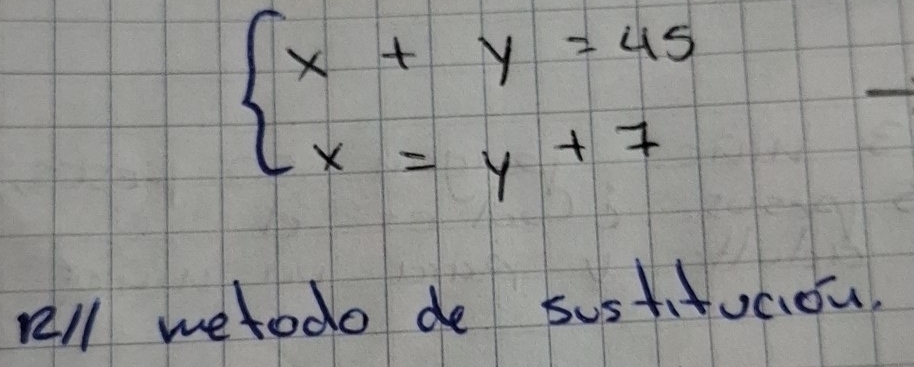 x + y = 45
x = y + 7
R// metodo de sustitución.